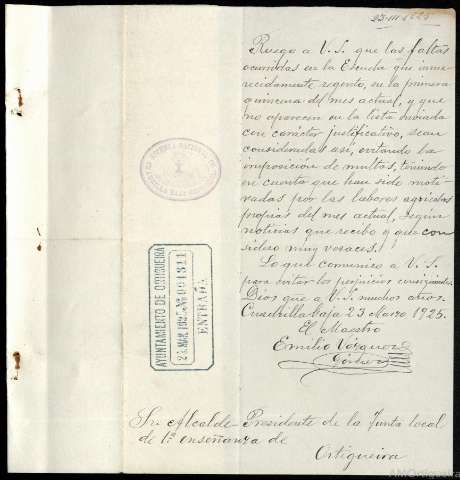 23-III-1925
Ruego a V.S. que las faltas
ocurridas en la Escuela que inme-
recidamente regento, en la primera
quincena del mes actual, y que
no aparecen en la lista enviada
con carácter justificativo, sean
consideradas así, evitando la
imposición de multas, teniendo
en cuenta que han sido moti-
vadas por las labores agrícolas
propias del mes actual, según
noticias que recibo y que con
sidero muy veraces.
Lo que comunico a V.S.
para evitar los perjuicios consiguientes.
Dios gue a V.S. muchos años.
Cuadrilla baja 23 Marzo 1925.
El Maestro
Emilio Vázquez
Sr. Alcalde-Presidente de la Junta local
de 1ª enseñanza de
Ortigueira
ESCUELA NACIONAL DE
AYUNTAMIENTO DE ORTIGUEIRA
ENTRADA
AMOrtigueira